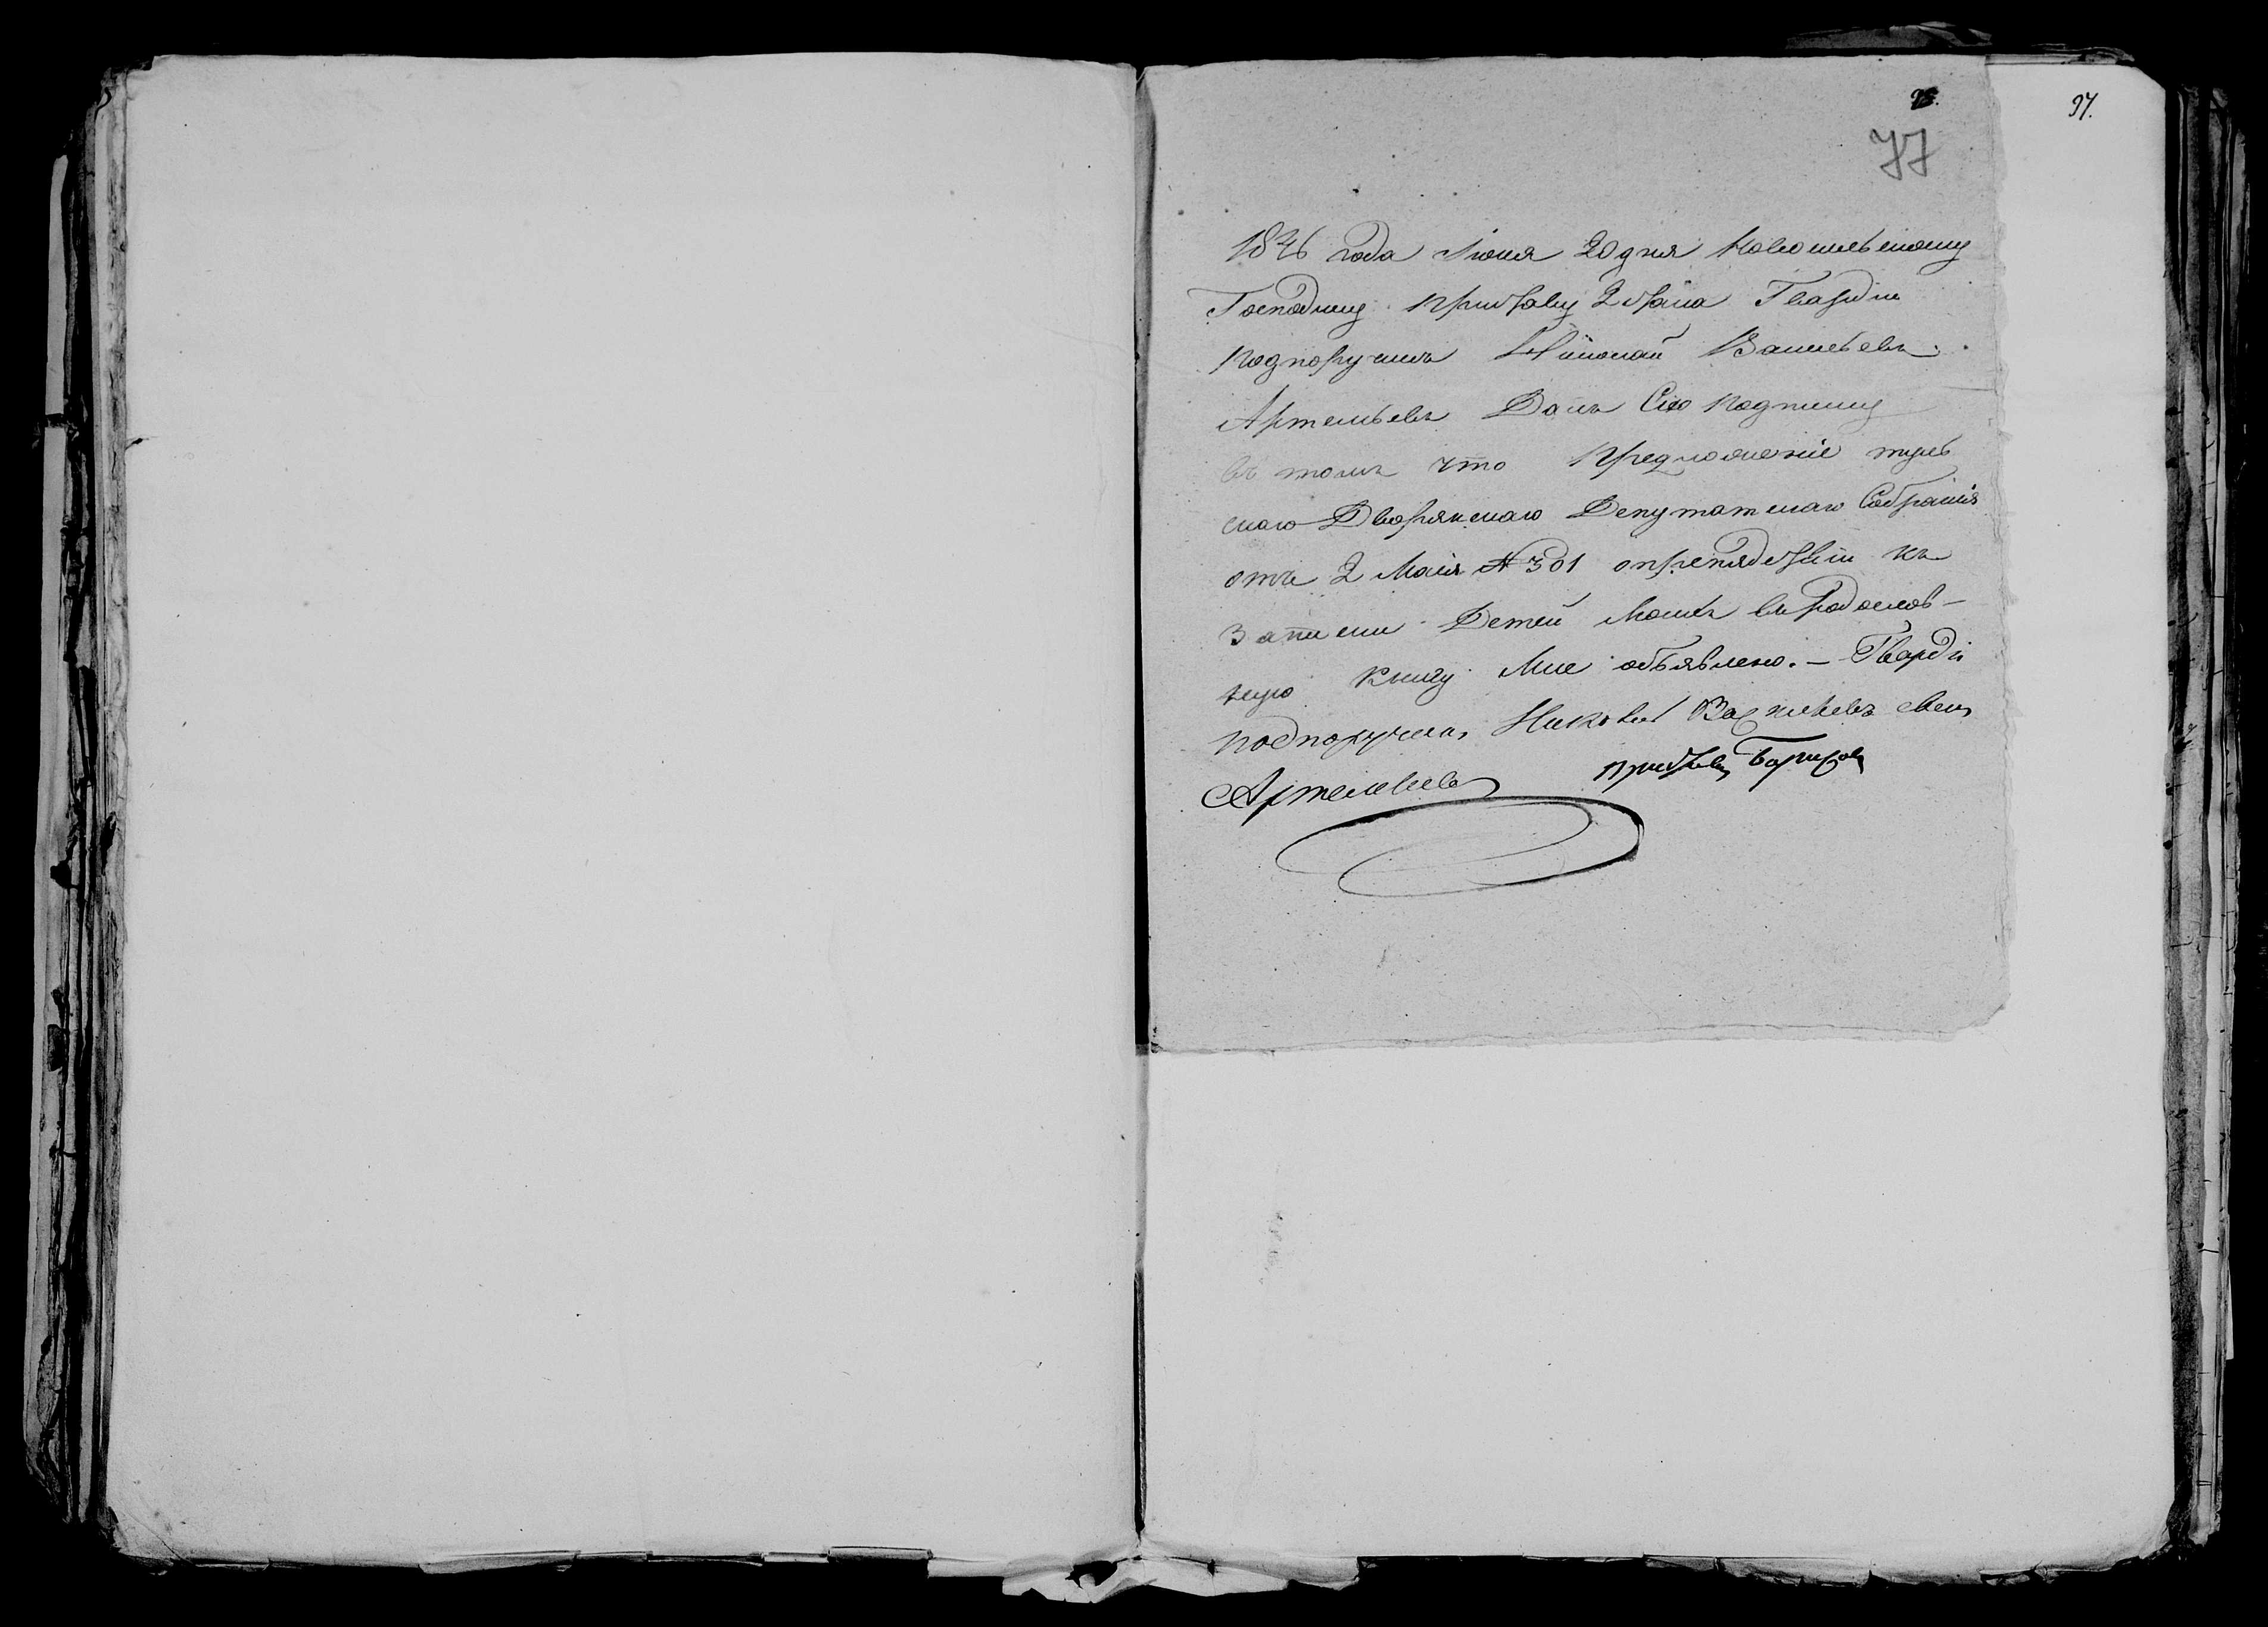 97.
77
1846 года Июня 20 дня Новосильскому
Господину Приставу 2 Стана Гвардии
подпоручикъ Николай Васильевъ
Артемьевъ Далъ Сию подписку
въ томъ что Предложение туль
скаго Дворянскаго Депутатскаго Собрания
отъ 2 Маия № 301 о къ
Записи Детей Моихъ въ Родослов-
ную Книгу Мне объявлено. — Гвардіи
подпоручикъ Николай Васильевъ сынъ
Артемьевъ
приставъ Борисовъ